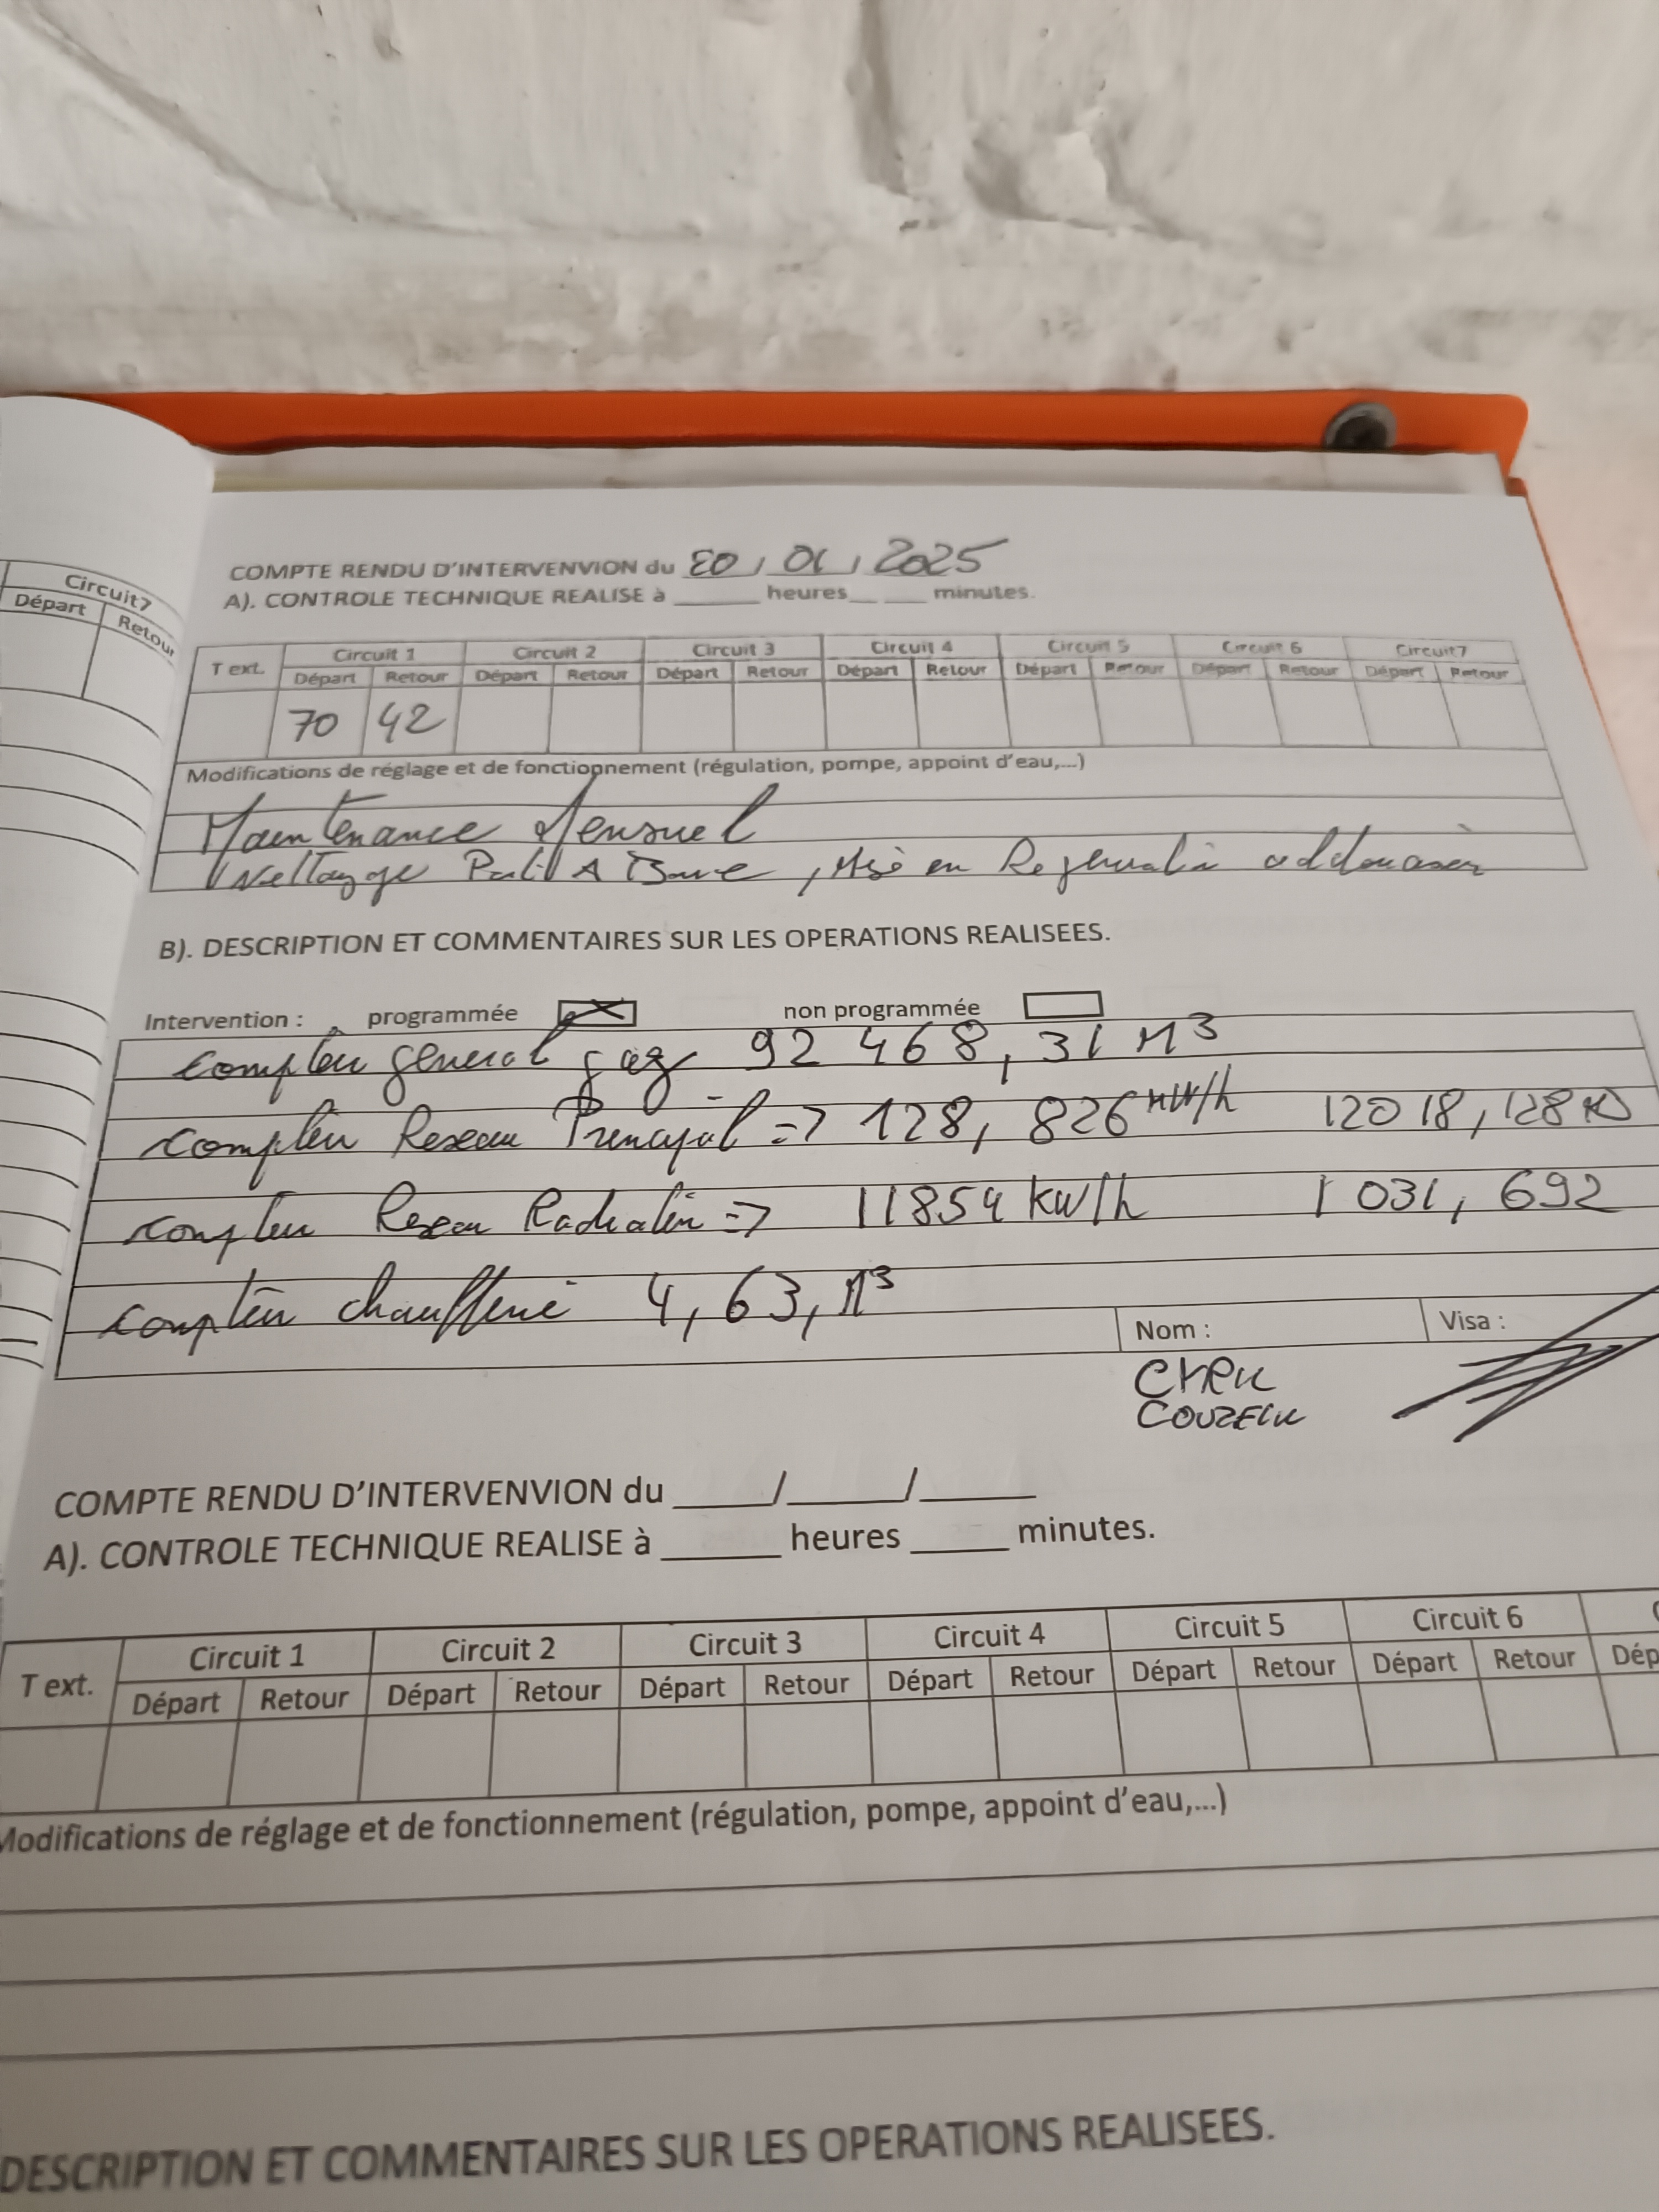 Circuit7
Départ Retour
COMPTE RENDU D'INTERVENVION du 20/01/2025
A). CONTROLE TECHNIQUE REALISE à ______ heures ______ minutes.
T ext. Circuit 1 Circuit 2 Circuit 3 Circuit 4 Circuit 5 Circuit 6 Circuit7
Départ Retour Départ Retour Départ Retour Départ Retour Départ Retour Départ Retour Départ Retour
70 42
Modifications de réglage et de fonctionnement (régulation, pompe, appoint d'eau,...)
Maintenance Mensuel
Nettoyage Pot A Boue, Mise en
B). DESCRIPTION ET COMMENTAIRES SUR LES OPERATIONS REALISEES.
Intervention : programmée non programmée
compteur général gaz 92 468,31 M3
compteur Reseau Principal => 128, 826 MW/h 12018,128
compteur Reseau Radiateur => 11854 kW/h 1 031, 692
compteur chaufferie 4,63, M3
Nom : Visa :
COMPTE RENDU D'INTERVENVION du _____/_____/_____
A). CONTROLE TECHNIQUE REALISE à ______ heures _____ minutes.
T ext. Circuit 1 Circuit 2 Circuit 3 Circuit 4 Circuit 5 Circuit 6
Départ Retour Départ Retour Départ Retour Départ Retour Départ Retour Départ Retour Dép
Modifications de réglage et de fonctionnement (régulation, pompe, appoint d'eau,...)
DESCRIPTION ET COMMENTAIRES SUR LES OPERATIONS REALISEES.